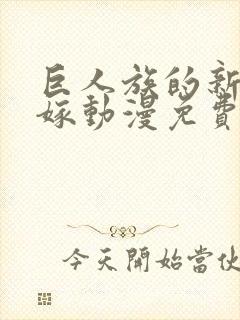 巨人族的新
嫁動漫免費
今天開始當伙